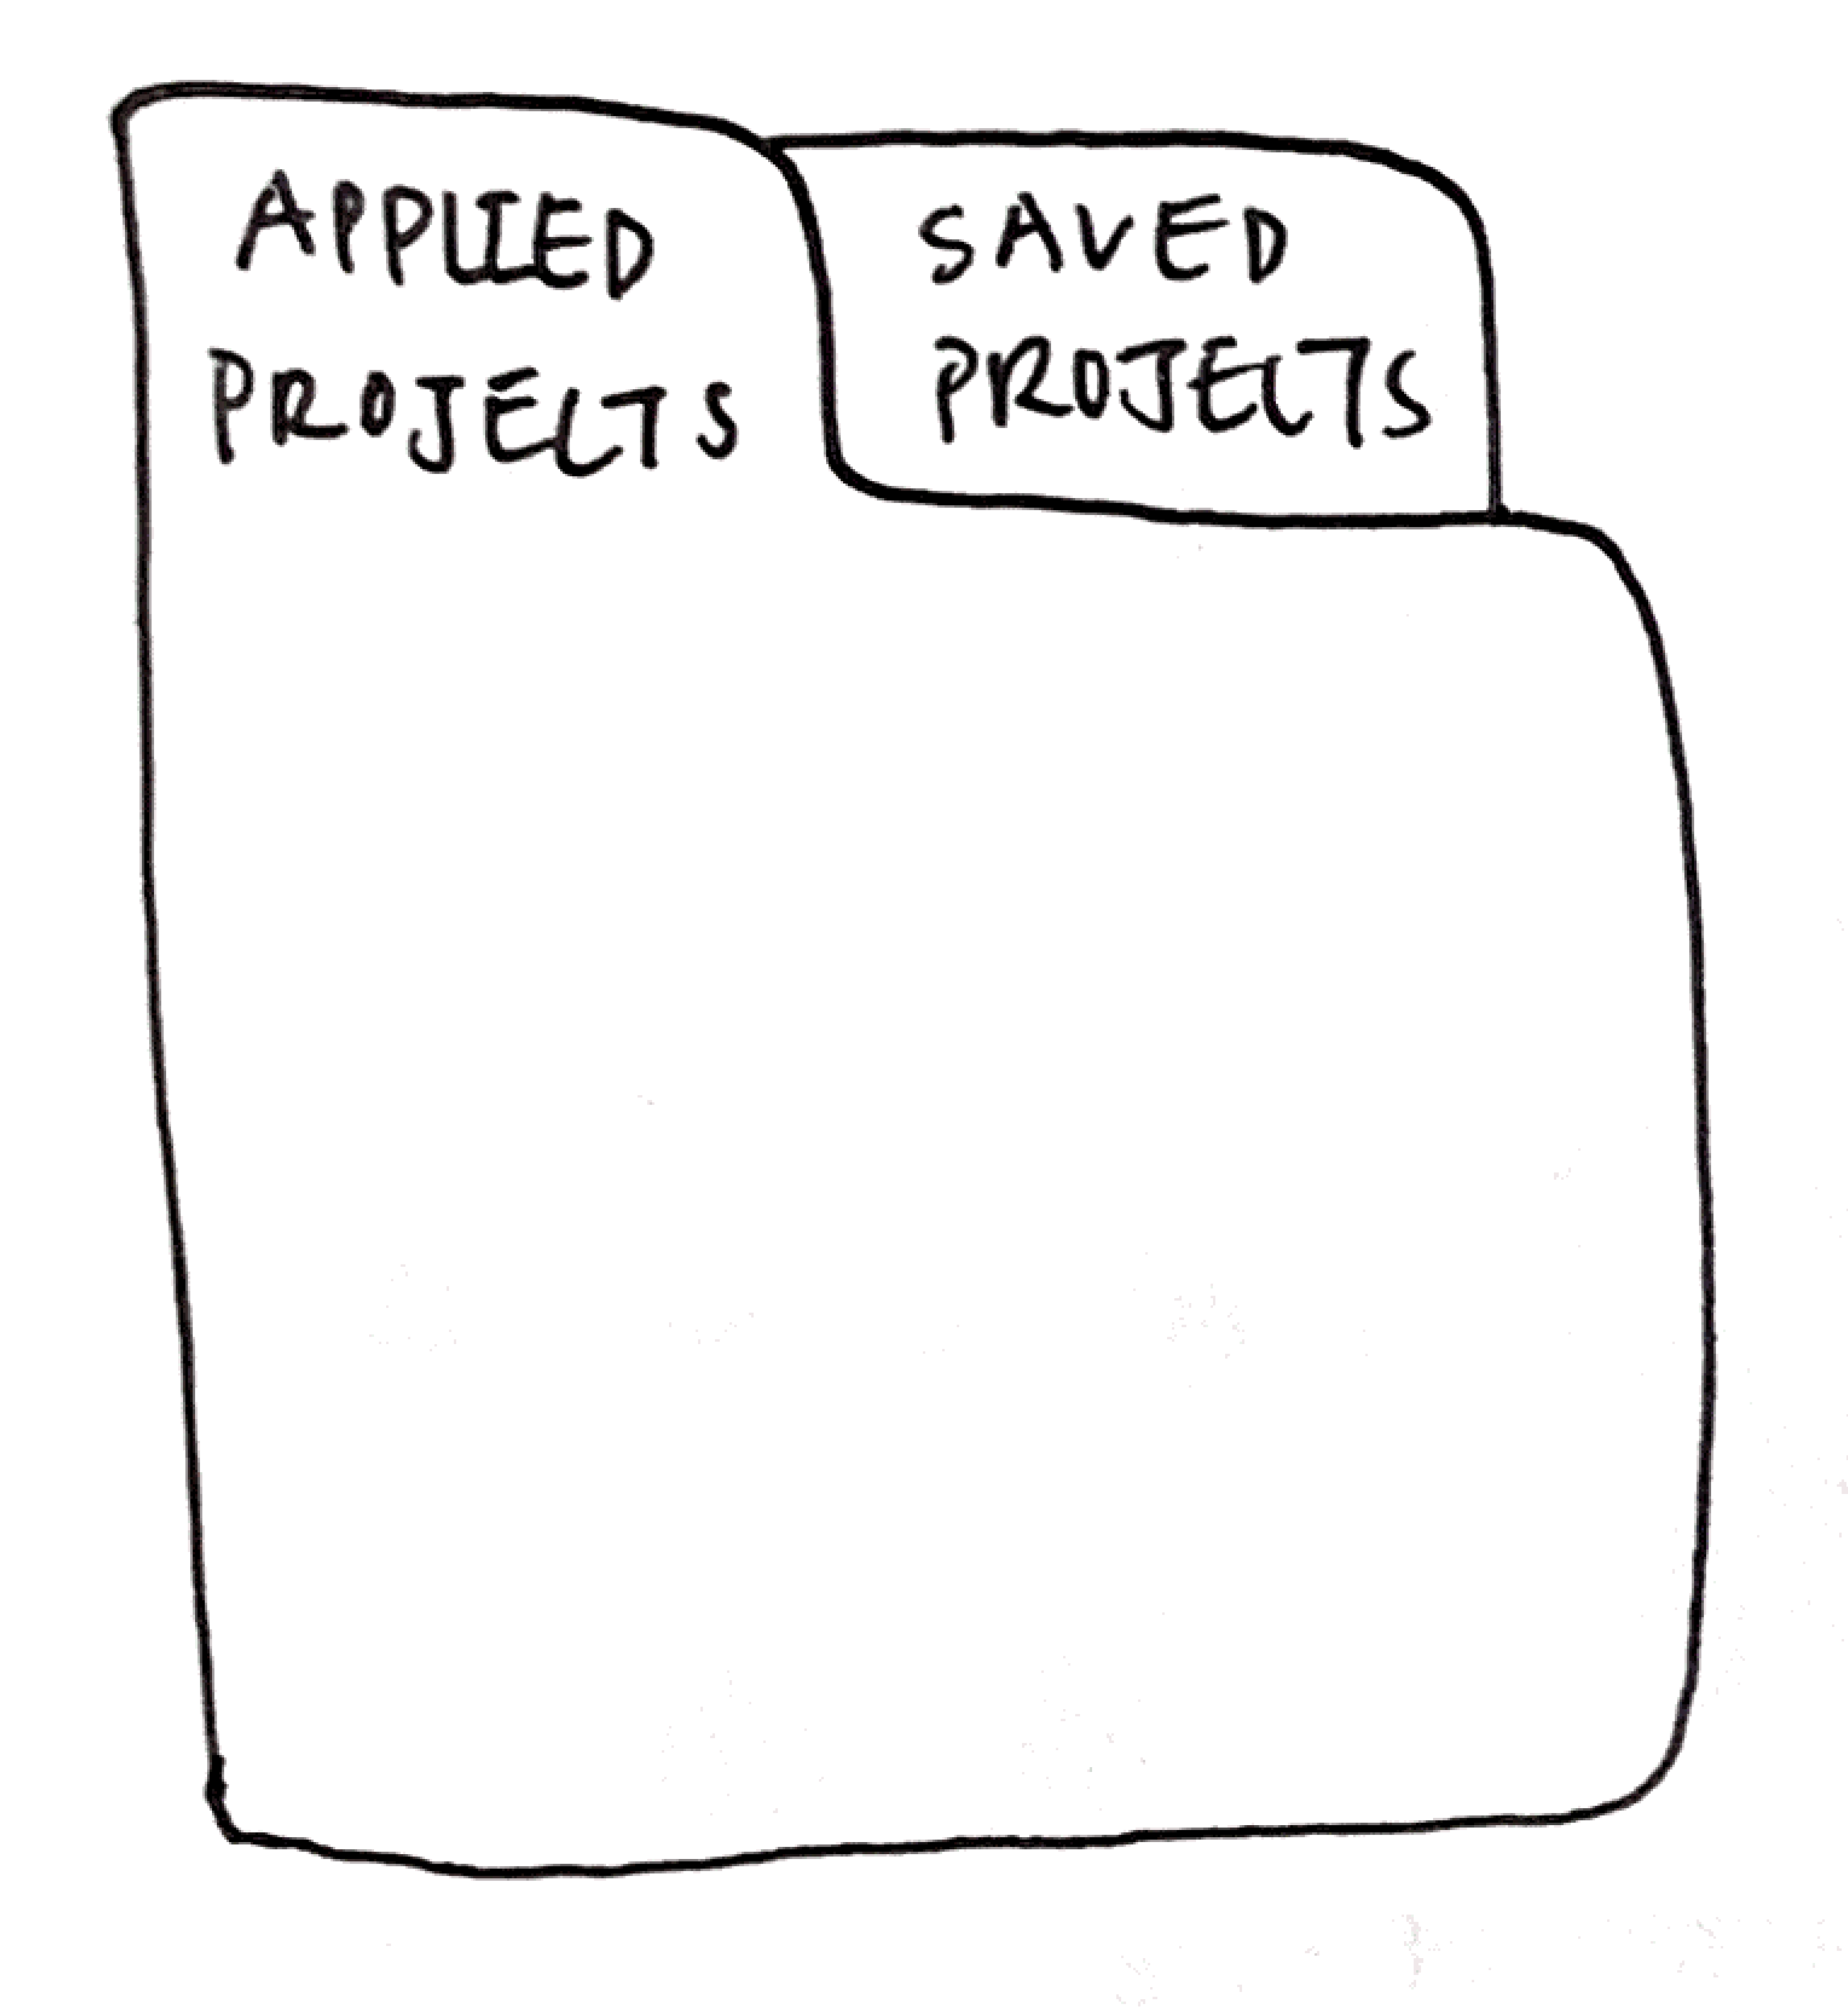 APPLIED
PROJECTS
SAVED
PROJECTS